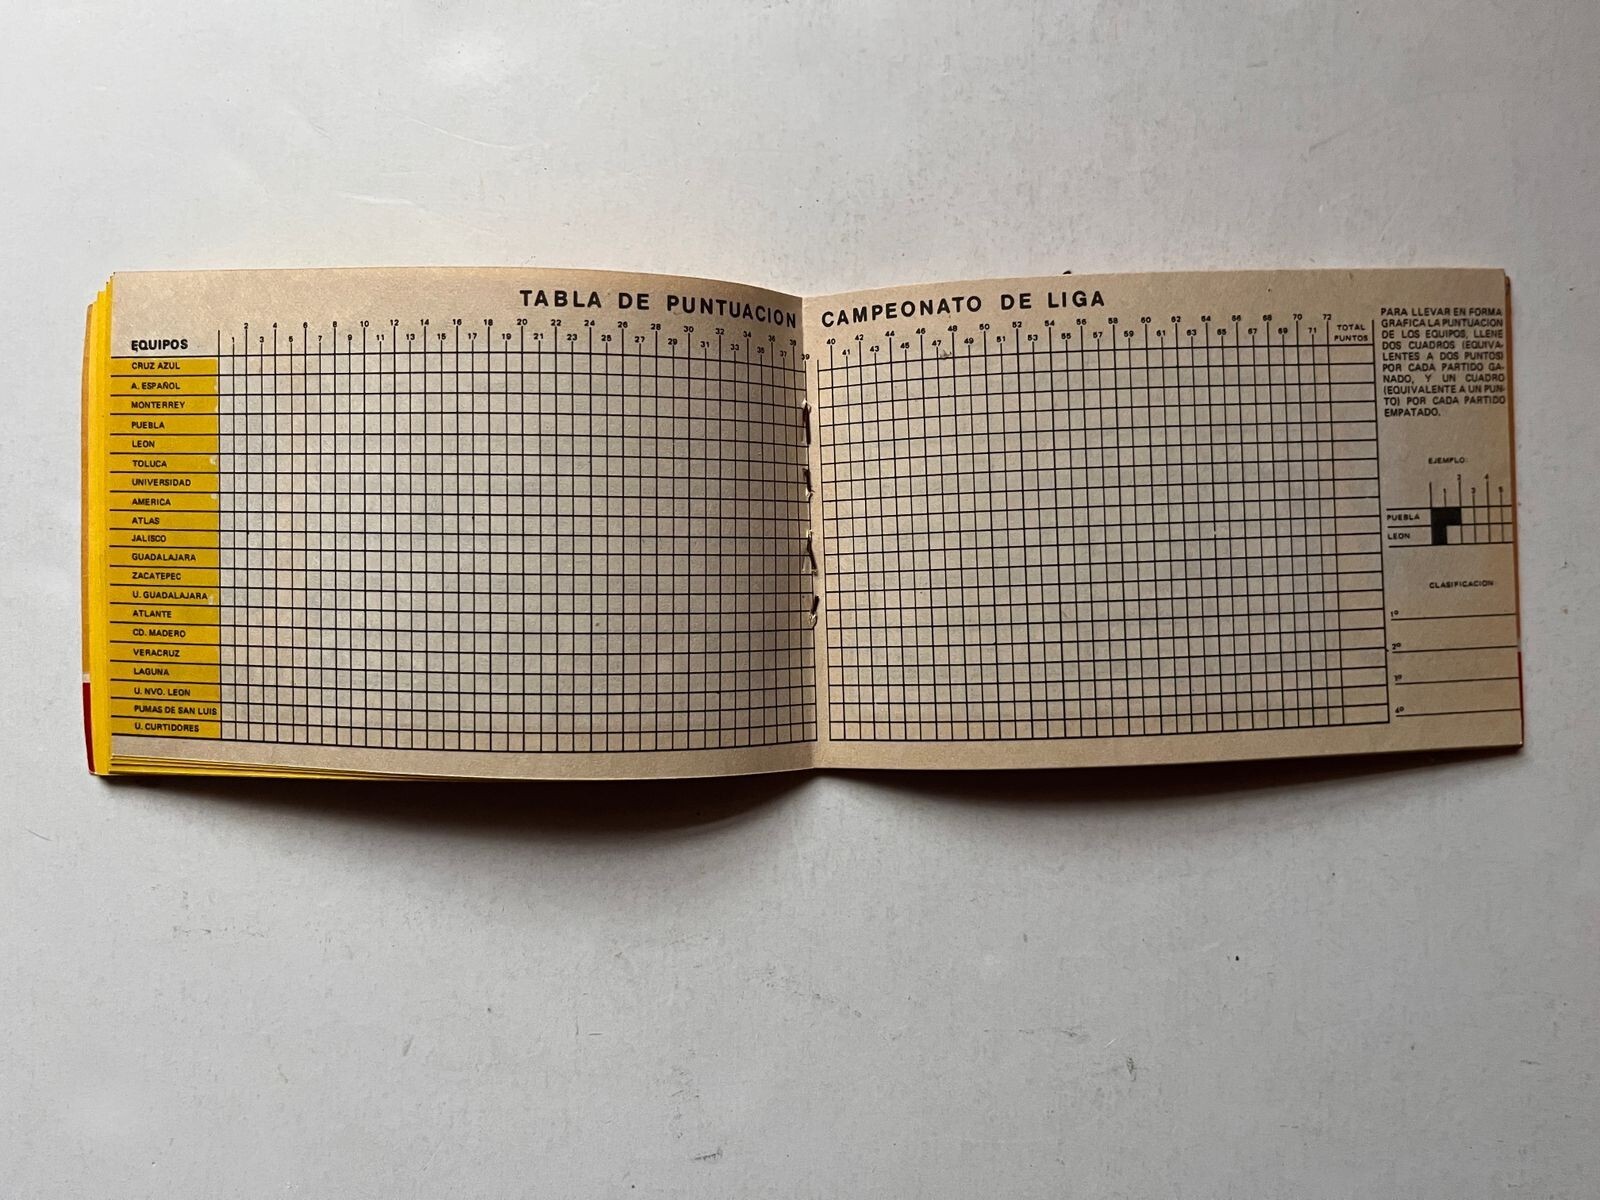 TABLA DE PUNTUACION CAMPEONATO DE LIGA
2 4 6 8 10 12 14 16 18 20 22 24 26 28 30 32 34 36 38 40 42 44 46 48 50 52 54 56 58 60 62 64 66 68 70 72
EQUIPOS 1 3 5 7 9 11 13 15 17 19 21 23 25 27 29 31 33 35 37 39 41 43 45 47 49 51 53 55 57 59 61 63 65 67 69 71 TOTAL PUNTOS
CRUZ AZUL
A. ESPAÑOL
MONTERREY
PUEBLA
LEON
TOLUCA
UNIVERSIDAD
AMERICA
ATLAS
JALISCO
GUADALAJARA
ZACATEPEC
U. GUADALAJARA
ATLANTE
CD. MADERO
VERACRUZ
LAGUNA
U. NVO. LEON
PUMAS DE SAN LUIS
U. CURTIDORES
PARA LLEVAR EN FORMA
GRAFICA LA PUNTUACION
DE LOS EQUIPOS, LLENE
DOS CUADROS (EQUIVA-
LENTES A DOS PUNTOS)
POR CADA PARTIDO GA-
NADO, Y UN CUADRO
(EQUIVALENTE A UN PUN-
TO) POR CADA PARTIDO
EMPATADO.
EJEMPLO:
2 4
1 3 5
PUEBLA
LEON
CLASIFICACION
1º
2º
4º